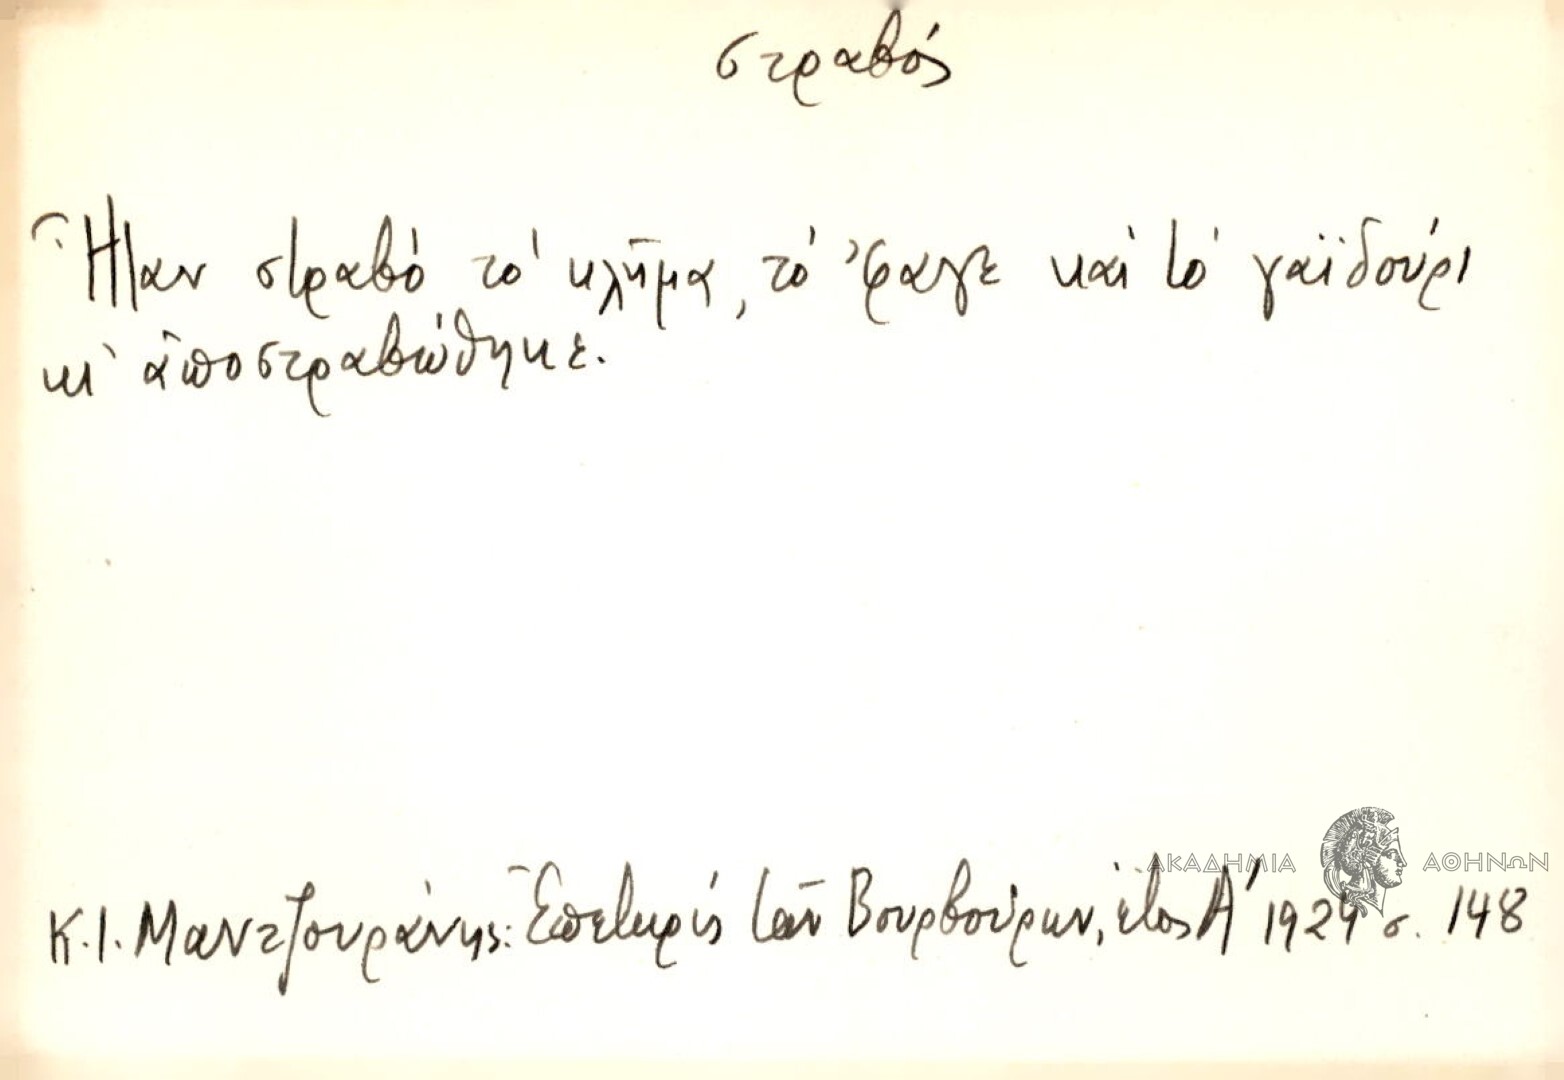 στραβός
Ἦταν στραβό τό κλῆμα, τό 'φαγε καί τό γαϊδούρι
κι' ἀποστραβώθηκε.
ΑΚΑΔΗΜΙΑ ΑΘΗΝΩΝ
Κ.Ι. Μαντζουράνης: Ἐπετηρίς τῶν Βουρβούρων, ἔτος Α' 1929 σ. 148